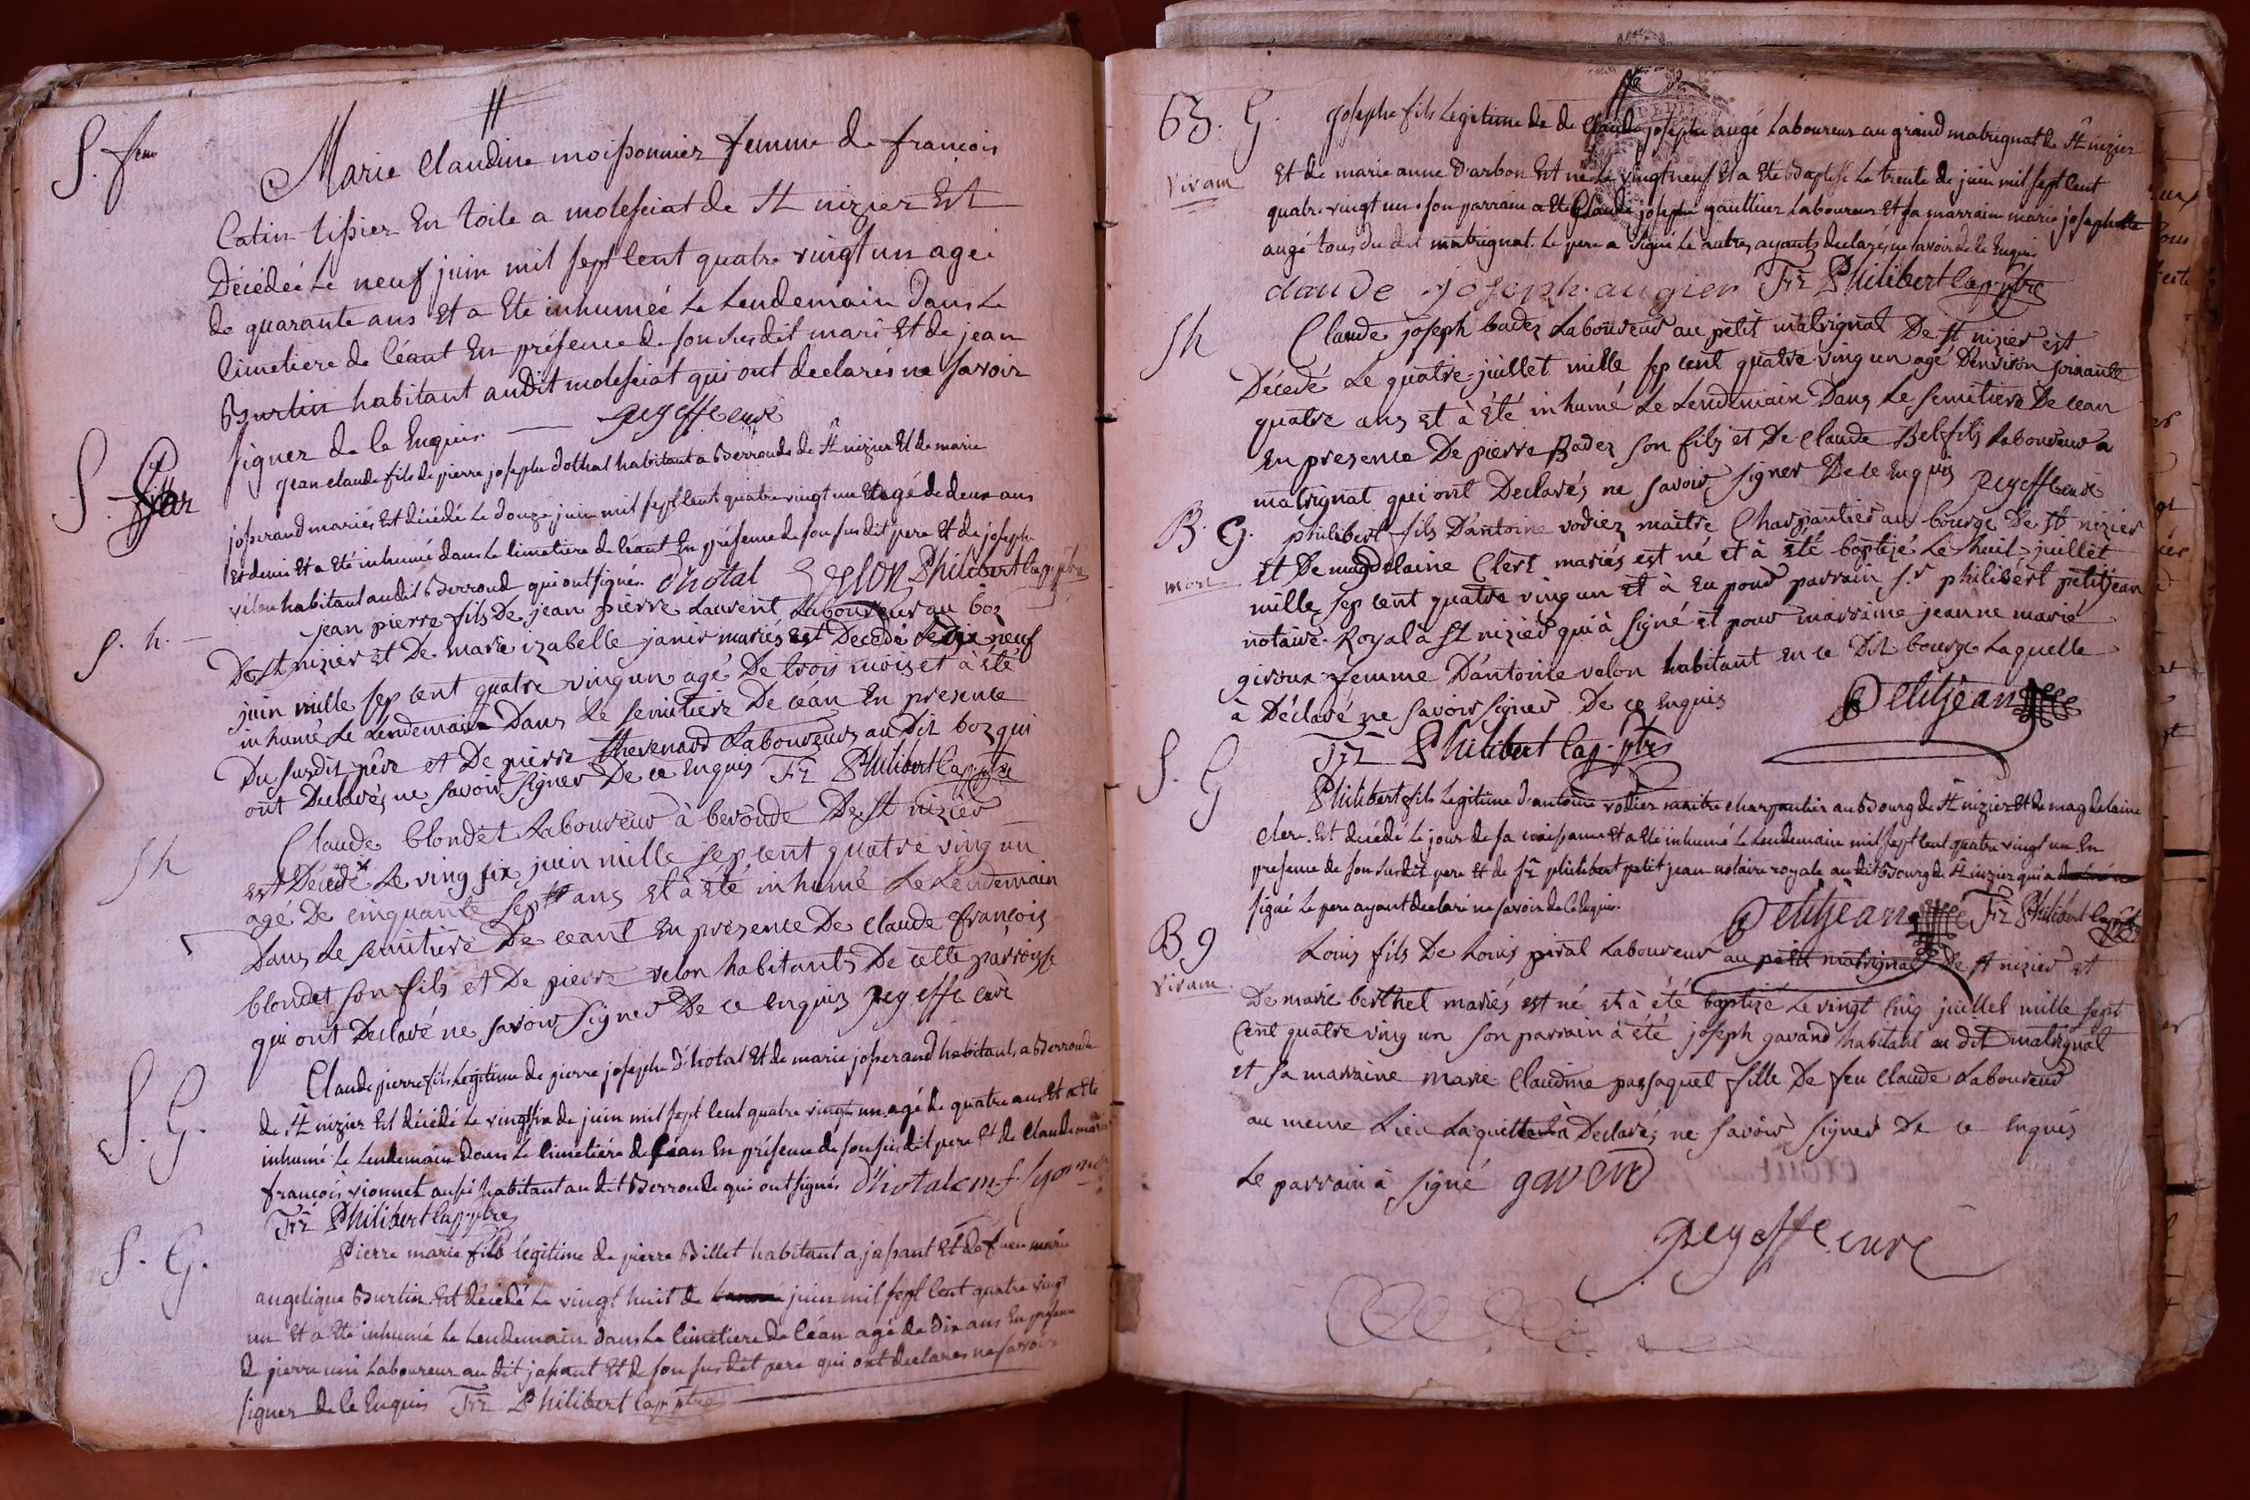 S. fem
Marie Claudine moissonnier femme de françois
Catin tissier En toile a molefeiat de St nizier Est
Décédée Le neuf juin mil sept Cent quatre vingt un agée
de quarante ans Et a Eté inhumée Le Lendemain dans Le
Cimetiere de Céant En présence de son susdit mari Et de jean
Burtin habitant audit molefeiat qui ont declarés ne savoir
signer de Ce Enquis. peyeffe curé
S. Gar
jean claude fils de pierre josephe dothal habitant a Berroude de St nizier Et de marie
josserand mariés Est décédé Le douze juin mil sept Cent quatre vingt un Et agé de deux ans
Et demi Et a Eté inhumé dans Le Cimetiere de Céant En présence de son susdit pere Et de joseph
vélon habitant audit Berroud qui ont signés. d'hotal velon Philibert Cap. ptre
S. h.
jean pierre fils De jean pierre Laurent Laboureur au boz
De St nizier et De marie izabelle janin mariés est Decedé Le dix neuf
juin mille sep cent quatre ving un agé De trois mois et à été
inhumé Le Lendemain Dans Le semitiere De céan En presence
Du susdit père et De pierre thevenard Laboureur au Dit boz qui
ont Declarés ne savoir signer De ce Enquis Frz Philibert Cap. ptre
S h
Claude blondet Laboureur à beroude De St nizier
est Décedé Le ving six juin mille sep cent quatre ving un
agé De cinquante sept ans et à été inhumé Le Lendemain
Dans Le semitiere De ceant En presence De Claude françois
blondet son fils et De pierre velon habitants De cette parroisse
qui ont Declaré ne savoir signer De ce Enquis peyeffe curé
S. G.
Claude pierre fils Legitime de pierre josephe d'hotal Et de marie josserand habitants a Berroude
de St nizier Est décédé Le vingt six de juin mil sept Cent quatre vingt un agé de quatre ans Et a Eté
inhumé Le Lendemain dans Le Cimetiére de Céan En présence de son susdit pere Et de Claude marie
françois vionnet aussi habitant au dit Berroude qui ont signés d'hotal
Frz Philibert Cap. ptre
S. G.
Pierre marie fils legitime de pierre Billet habitant a jassant Et de feue marie
angelique Burtin. Est décédé Le vingt huit de juin mil sept Cent quatre vingt
un Et a Eté inhumé Le Lendemain dans Le Cimetiere de Céan agé de Dix ans En présence
de pierre Laboureur au dit jassant Et de son susdit pere qui ont declarés ne savoir
signer de Ce Enquis Frz Philibert Cap. ptre
63. G.
vivam
josephe fils Legitime de de Claude josephe augé Laboureur au grand matrignat de St nizier
Et de marie anne darbon Est né Le vingt neuf Et a Eté Baptisé Le trente de juin mil sept Cent
quatre vingt un. son parrain a Eté Claude joseph gauttier Laboureur Et sa marraine marie josephette
augé tous du dit matrignat. Le pere a signé Le autres ayants declarés ne savoir de Ce Enquis
claude joseph augier Frz Philibert Cap. ptre
S h
Claude joseph badez Laboureur au petit matrignat De St nizier est
Décedé Le quatre juillet mille sep cent quatre ving un agé D'environ soixante
quatre ans et à été inhumé Le Lendemain Dans Le semitiere De cean
En presence De pierre Badez son fils et De Claude Belfils Laboureur a
matrignat qui ont Declarés ne savoir signer De ce Enquis peyeffe curé
B. G.
mort
philibert fils D'antoine vodiez maitre Charpantier au bourg De St nizier
Et De magdelaine Clert mariés est né et à été baptisé Le huit juillet
mille sep cent quatre ving un et à Eu pour parrain Sr philibert petitjean
notaire Royal à St nizier qui à signé et pour marraine jeanne marie
giroux femme D'antoine velon habitant En ce Dit bourg Laquelle
à Déclaré ne savoir signer De ce Enquis Petitjean
Frz Philibert Cap. ptre
S. G
Philibert fils Legitime d'antoine vodier maitre charpentier au Bourg de St nizier Et de magdelaine
Cler. Est décédé Le jour de sa naissance Et a Eté inhumé Le Lendemain mil sept Cent quatre vingt un En
presence de son susdit pere Et de Sr philibert petit jean notaire royale au dit Bourg de St nizier qui a
signé Le pere ayant declaré ne savoir de Ce Enquis. Petitjean Frz Philibert Cap. ptre
B G
vivam
Louis fils De Louis piral Laboureur au petit matrignat De St nizier et
De marie berthet mariés est né et à été baptisé Le vingt cinq juillet mille sept
Cent quatre ving un son parrain à été joseph gavand habitant au dit matrignat
et sa marraine marie Claudine passaquet fille De feu Claude Laboureur
au meme Lieu Laquelle à Declarés ne savoir signer De ce Enquis
Le parrain à signé gavend
peyeffe curé